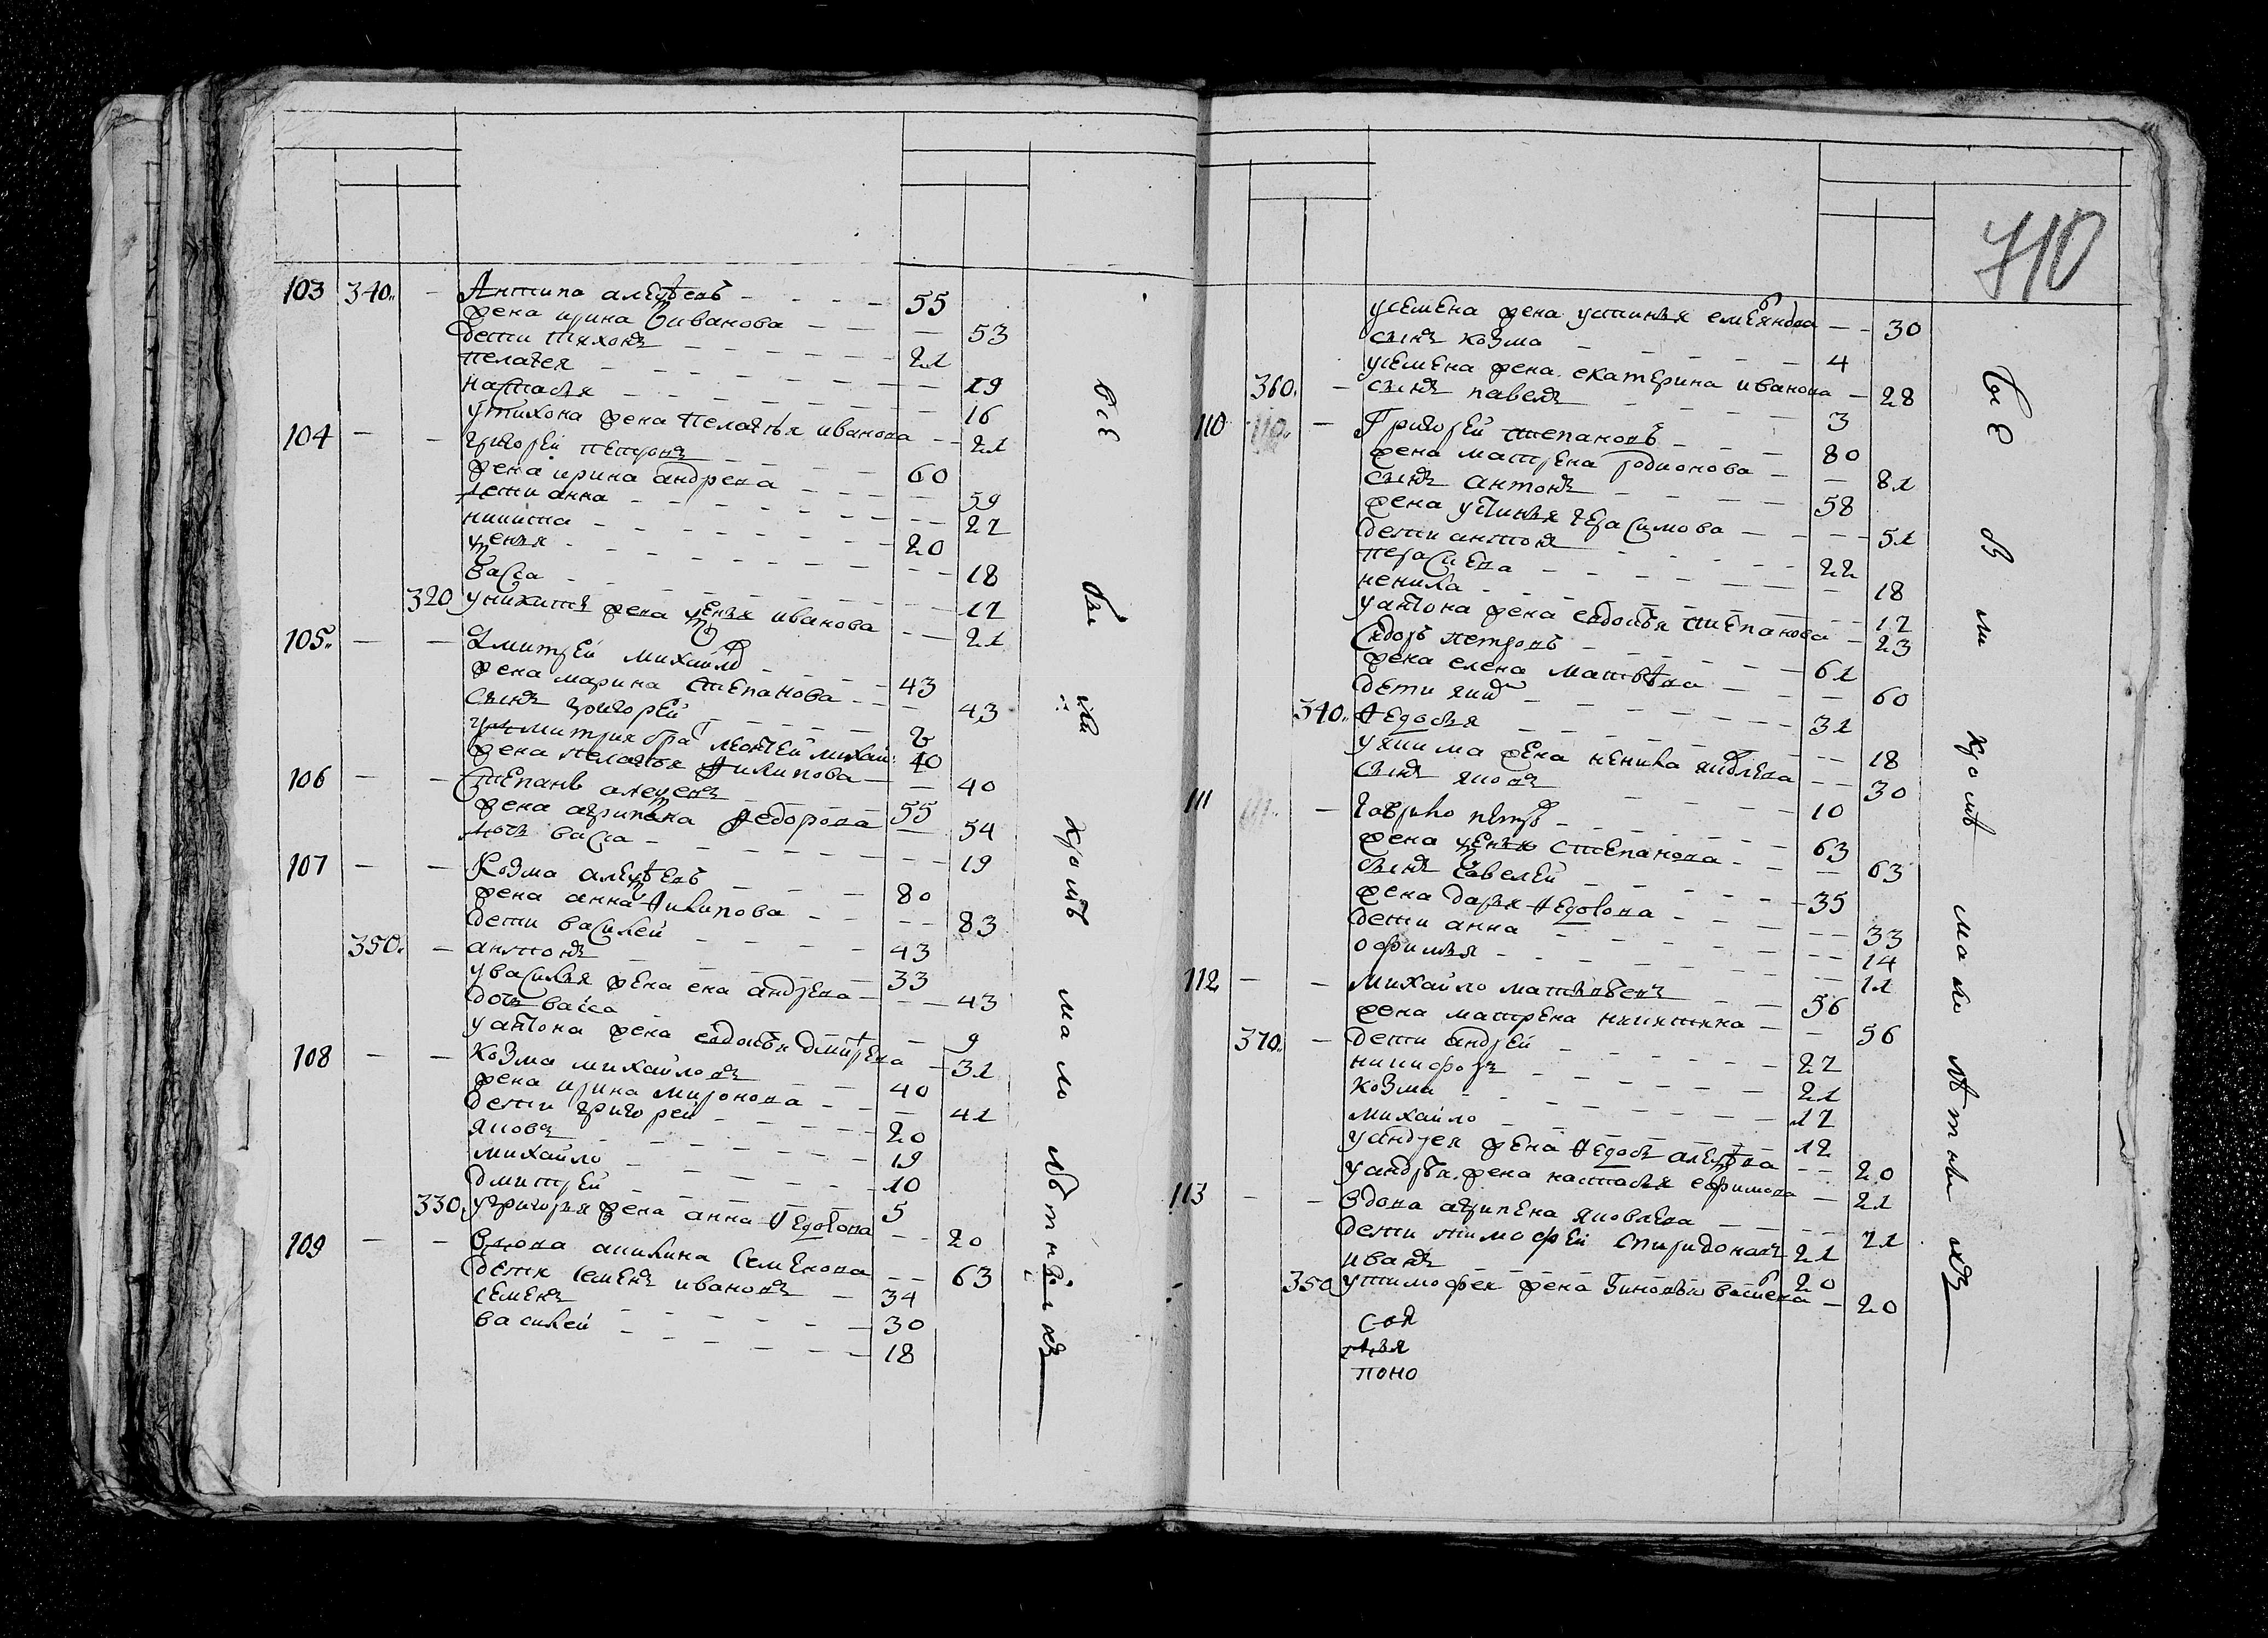 103 340. Антипа алеѯеевъ 55
жена ирина иванова 53
дети тихонъ 21
пелагея 19
настасья 16
у тихона жена пелагѣя иванова 21
104 григорей петровъ 60
жена ирина андреева 59
дети анна 22
никита 20
ѯенья 18
васса 12
320 у никиты жена ѯенья иванова 21
105. Дмитрей михайло 43
жена марина степанова 43
сынъ григорей
у дмитрия брат леонтей михай: 40
жена пелагѣя филипова 40
106 Степанъ алеѯеевъ 55
жена агрипена федорова 54
дочь васса 19
107 Козма алеѯеевъ 80
жена анна филипова 83
дети василей 43
350. антонъ 33
у василья жена андреева 43
дочь васса 9
у антона жена евдотья дмитрева 31
108 козма михайловъ 40
жена ирина миронова 41
дети григорей 20
яковъ 19
михайло 10
дмитрей 5
330. у григорья жена анна федорова 20
109 вдова акилина семенова 63
дети семенъ ивановъ 34
семенъ 30
василей 18
все были кромѣ мало лѣтныхъ
710
у семена жена устинья емельянова 30
сынъ козма 4
у семена жена екатерина иванова 28
360. сынъ павелъ 3
110 110. Григорей степановъ 80
жена матрена родионова 81
сынъ антонъ 58
жена устинья герасимова 51
дети антонъ 22
18
ненила 12
у антона жена евдотья степанова 23
сидоръ петровъ 61
жена елена матвѣева 60
дети яким 31
340. федосья 18
у якима жена ненила яковлева 30
сынъ яковъ 10
111 111. гаврило петровъ 63
жена ѯенья степанова 63
сынъ савелей 35
жена дарья федорова 33
дети анна 14
офимья 11
112 михайло матвѣевъ 56
жена матрена никитина 56
370. дети андрей 22
никифоръ 21
козма 17
михайло 12
у андрея жена федосья алеѯѣева 20
у андрѣя жена настасья ефимова 21
113 вдова агрипена яковлева 71
дети тимофей спиридоновъ 21
иванъ 20
350 у тимофея жена зиновья васильева 20
поно
все были кромѣ мало лѣтныхъ